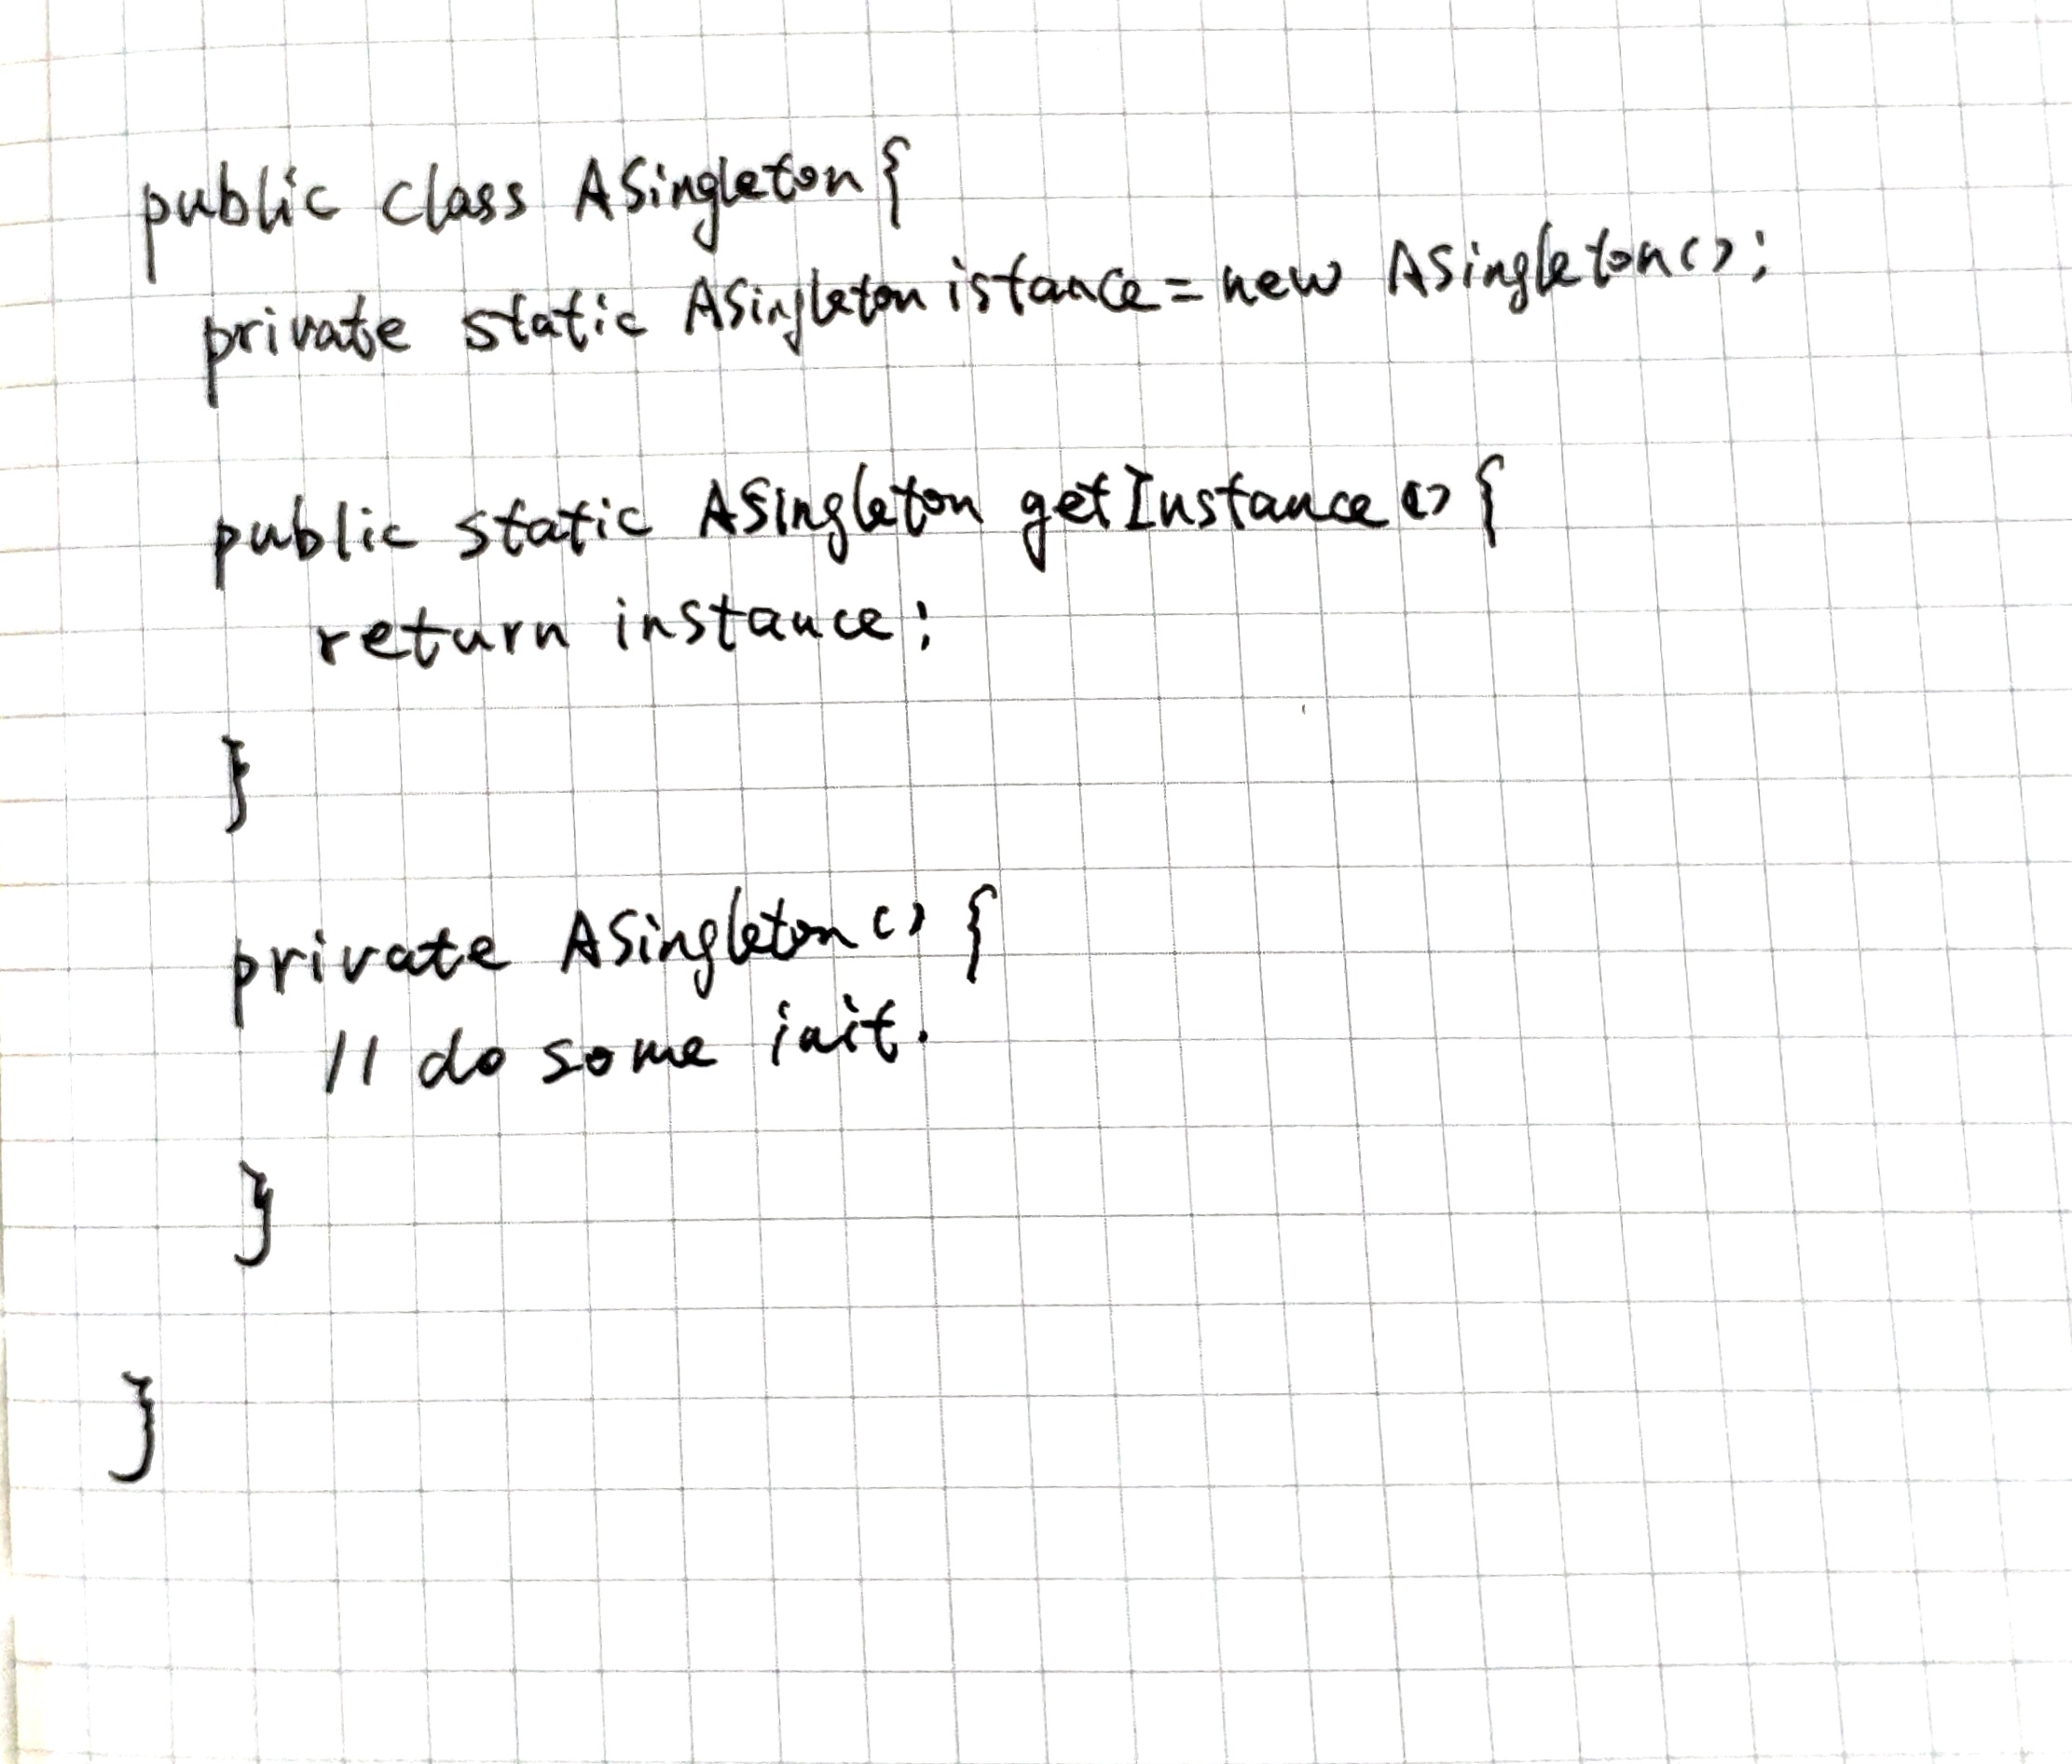 public class ASingleton{
private static ASingleton istance = new ASingleton();
public static ASingleton getInstance(){
return instance;
}
private ASingleton(){
// do some init.
}
}